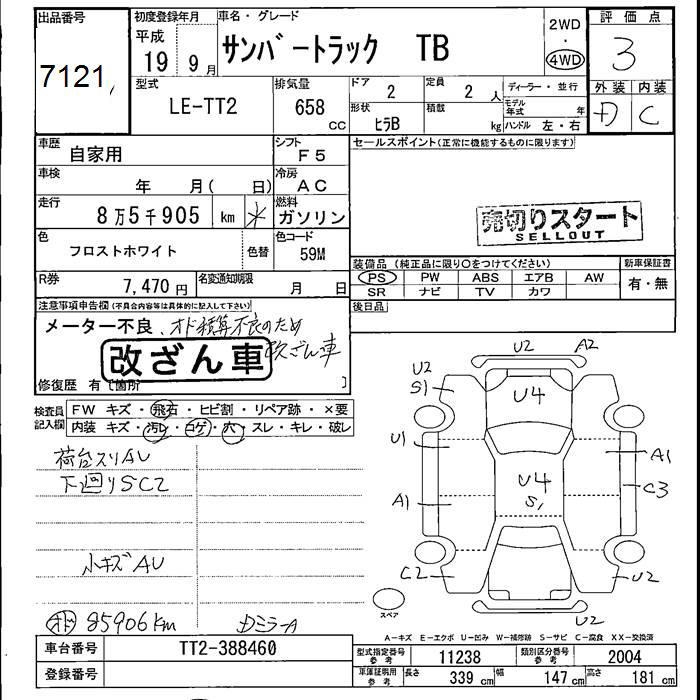 出品番号
7121
初度登録年月
平成
19 9月
車名・グレード
サンバートラック TB
2WD
・
4WD
評価点
3
外装 内装
D C
型式
LE-TT2
排気量
658
CC
ドア
2
定員
2 人
形状
ヒラB
積数
kg
ディーラー・並行
モデル年式 年
ハンドル 左・右
車歴
自家用
シフト
F5
車検
年 月( 日)
冷房
AC
走行
8万5千905 km *
燃料
ガソリン
色
フロストホワイト
色替
色コード
59M
R券
7,470円
名変通知期限
月 日
セールスポイント(正常に機能するものに限ります)
売切りスタート
SELLOUT
装備品 (純正品に限り○をつけてください)
PS PW ABS エアB AW
SR ナビ TV カワ
新車保証書
有・無
後日品
注意事項申告欄(不具合内容等は具体的に記入して下さい)
メーター不良、オド積算不良のため
改ざん車
改ざん車
修復歴 有〔箇所 〕
検査員記入欄
FW キズ・飛石・ヒビ割・リペア跡・×要
内装 キズ・汚レ・コゲ・穴・スレ・キレ・破レ
荷台スリAU
下廻りSC2
小キズAU
オド 85906km
ミラーA
U2 A2
U2
S1
U4
U1
A1
U4
S1
C3
A1
C2
U2
U2
スペア
A-キズ E-エクボ U-凹み W-補修跡 S-サビ C-腐食 XX-交換済
車台番号
TT2-388460
登録番号
型式指定番号
参考
11238
類別区分番号
参考
2004
車庫証明用
参考
長さ 339 cm 幅 147 cm 高さ 181 cm